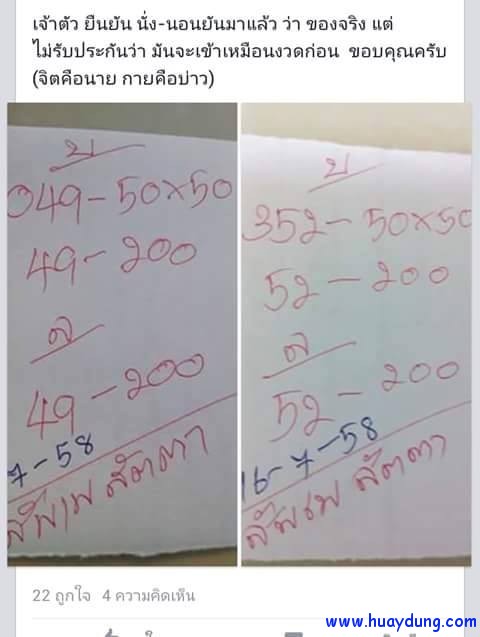 เจ้าตัว ยืนยัน นั่ง-นอนยันมาแล้ว ว่า ของจริง แต่
ไม่รับประกันว่า มันจะเข้าเหมือนงวดก่อน ขอบคุณครับ
(จิตคือนาย กายคือบ่าว)
บ
349-50×50
49-200
ล
49-200
7-58
สัพเพ สัตตา
บ
352-50×50
52-200
ล
52-200
16-7-58
สัพเพ สัตตา
22 ถูกใจ 4 ความคิดเห็น
www.huaydung.com